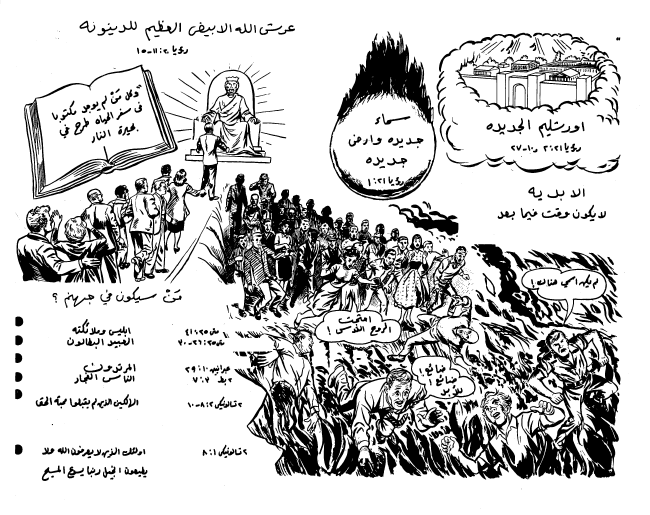 عرش الله الابيض العظيم للدينونه
رؤيا ٢٠: ١١-١٥
"وكل من لم يوجد مكتوبا
في سفر الحياه طرح في
بحيرة النار
سماء
جديده وارض
جديده
رؤيا ٢١: ١
اورشليم الجديده
رؤيا ٢١: ٢ و ١٠-٢٧
الابديه
لايكون وقت فيما بعد
من سيكون في جهنم ؟
ابليس وملائكته
متى ٢٥: ٤١
العبيد البطالون
متى ٢٥: ٢٦-٣٠
المرتدون
عبرانيين ١٠: ٢٩
الناس الفجار
٢ بط ٣: ٧
الذين لم يقبلوا محبة الحق
٢ تسالونيكي ٢: ٨-١٠
اولئك الذين لا يعرفون الله ولا
٢ تسالونيكي ١: ٨
يطيعون انجيل ربنا يسوع المسيح
لم يكن اسمي هناك !
احتقرت
الروح القدس !
ضائع !
ضائع !
للأبد